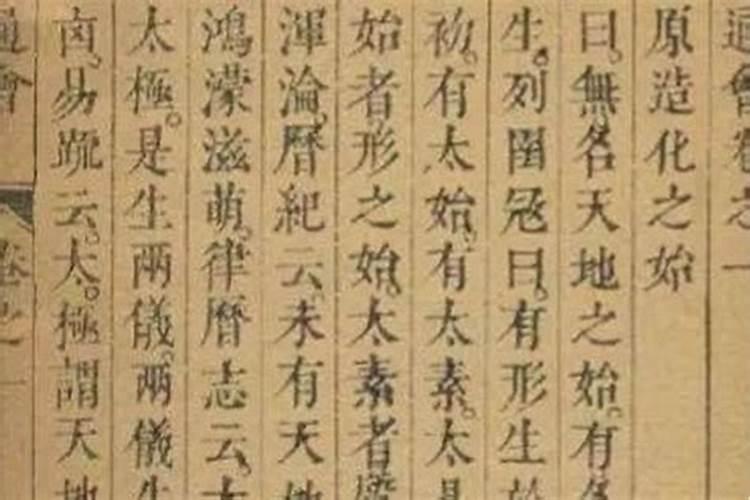 通會卷之一
原造化之始
曰。無名天地之始。有名
生。列圄冦曰。有形生於
初。有太始。有太素。太易
始者形之始。太素者
渾淪。曆紀云。未有天地
鴻濛滋萌。律曆志云。太
太極。是生兩儀。兩儀生
卤。易䟽云。太。極謂天地
卷之一